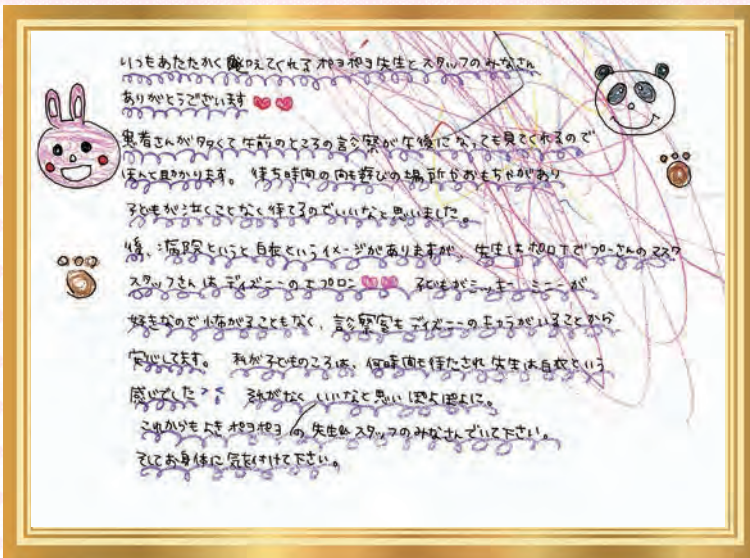 いつもあたたかく迎えてくれるポヨポヨ先生とスタッフのみなさん
ありがとうございます
患者さんが多くて午前のところの診察が午後になっても見てくれるので
ほんと助かります。待ち時間の間も遊びの場所やおもちゃがあり
子どもが泣くことなく待てるのでいいなと思いました。
後、病院というと白衣というイメージがありますが、先生はポロTでプーさんのマスク
スタッフさんはディズニーのエプロン 子どもがミッキー ミニーが
好きなので怖がることもなく、診察室もディズニーのキャラがいることから
安心してます。私が子どものころは、何時間も待たされ先生は白衣という
感じでした それがなくいいなと思いぽよぽよに。
これからもよきポヨポヨの先生&スタッフのみなさんでいて下さい。
そしてお身体に気を付けて下さい。